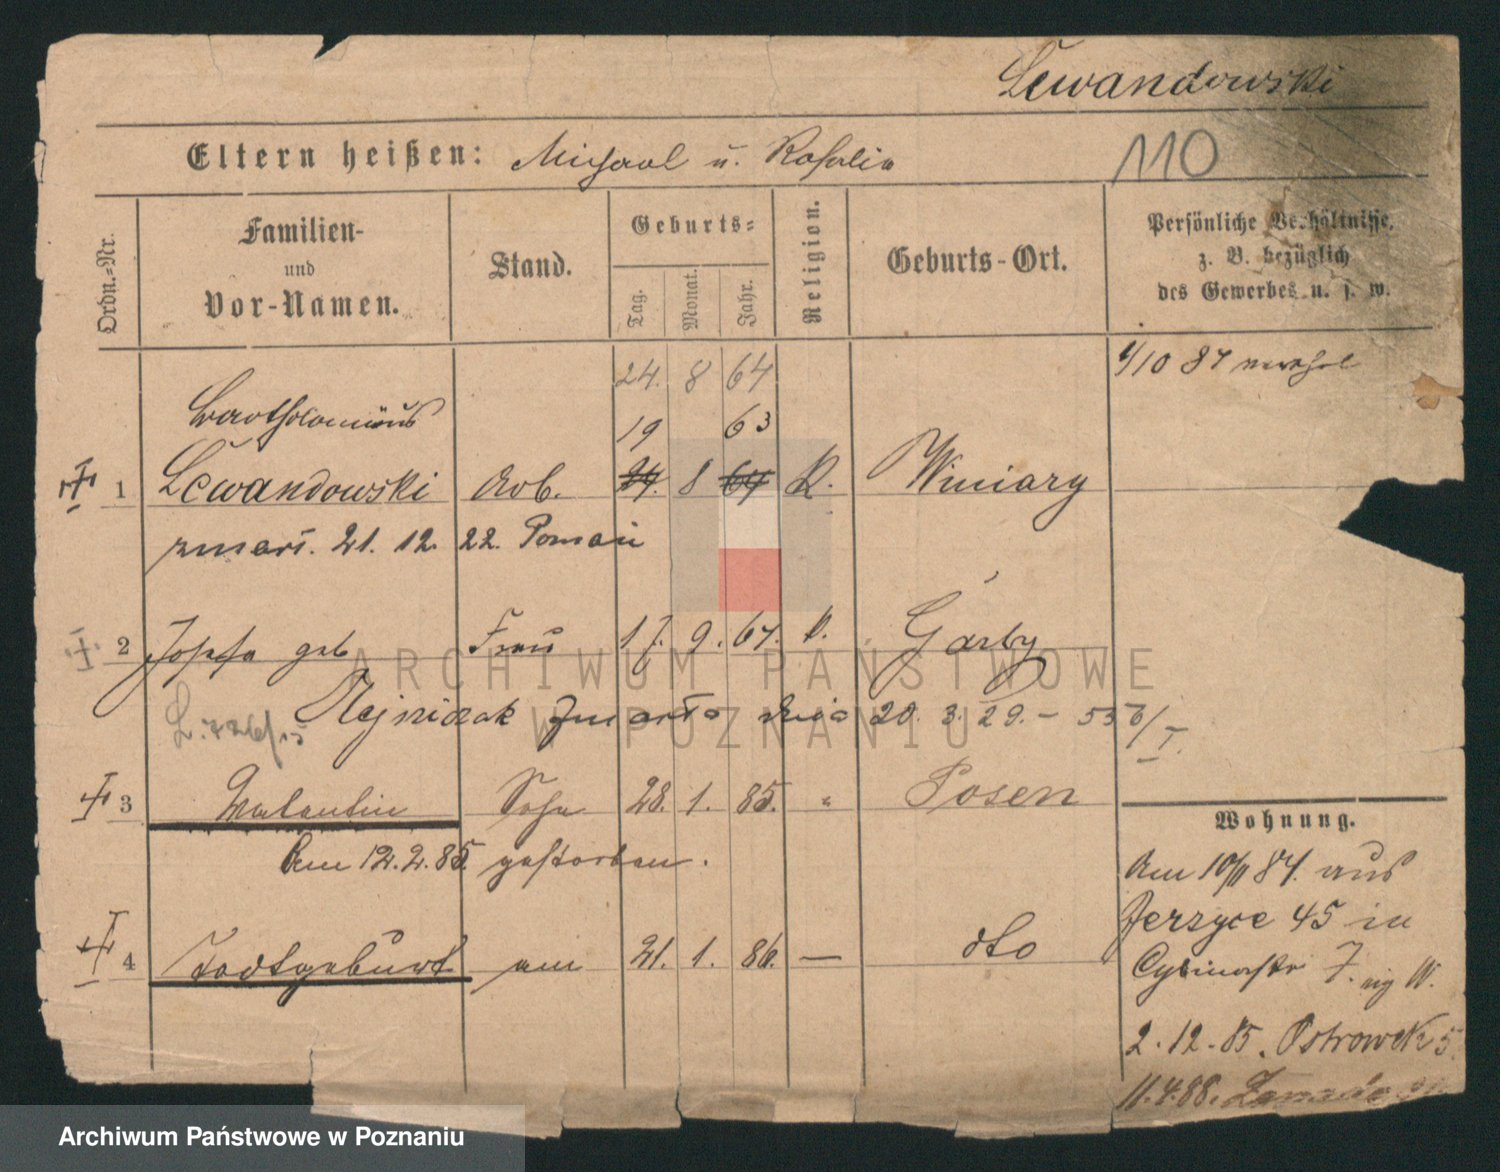 Lewandowski
Eltern heißen: Michael u. Rosalie
110
Ordn.-Nr.
Familien- und Vor-Namen.
Stand.
Geburts-
Tag.
Monat.
Jahr.
Religion.
Geburts-Ort.
Persönliche Verhältnisse,
z. B. bezüglich
des Gewerbes u. s. w.
1/10 87
24. 8 64
Bartholomäus 19 63
1 Lewandowski Arb. 24. 8 64 K. Winiary
zmarł. 21. 12. 22. Poznań
2 Josefa geb Frau 17. 9. 67. K. Garby
Nejniczak zmarła dnia 20. 3. 29. - 556/I.
3 Valentin Sohn 28. 1. 85. " Posen
Am 12. 2. 85. gestorben.
4 Todtgeburt am 21. 1. 86. — dto
Wohnung.
Am 10/11 84. aus
Jerzyce 45 in
Cybinastr 7.
2. 12. 85. Ostrowek 5
11. 4. 88.
ARCHIWUM PAŃSTWOWE
W POZNANIU
Archiwum Państwowe w Poznaniu